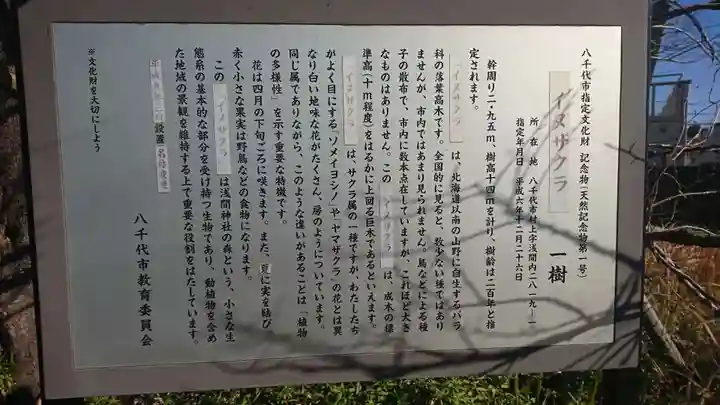 八千代市指定文化財 記念物(天然記念物第一号)
イヌザクラ 一樹
所在地 八千代市村上字浅間内一八一九―一
指定年月日 平成六年十二月二十六日
幹周り二・九五m、樹高十四mを計り、樹齢は二百年と推
定されます。
「イヌザクラ」は、北海道以南の山野に自生するバラ
科の落葉高木です。全国的に見ると、数少ない種ではあり
ませんが、市内ではあまり見られません。鳥などによる種
子の散布で、市内に数本点在していますが、これほど大き
なものはありません。この「イヌザクラ」は、成木の標
準高(十m程度)をはるかに上回る巨木であるといえます。
「イヌザクラ」は、サクラ属の一種ですが、わたしたち
がよく目にする「ソメイヨシノ」や「ヤマザクラ」の花とは異
なり白い地味な花がたくさん、房のようについています。
同じ属でありながら、このような違いがあることは「植物
の多様性」を示す重要な特徴です。
花は四月の下旬ごろに咲きます。また、夏に実を結び
赤く小さな果実は野鳥などの食物になります。
この「イヌザクラ」は浅間神社の森という、小さな生
態系の基本的な部分を受け持つ生物であり、動植物を含め
た地域の景観を維持する上で重要な役割をはたしています。
設置
八千代市教育委員会
※文化財を大切にしよう